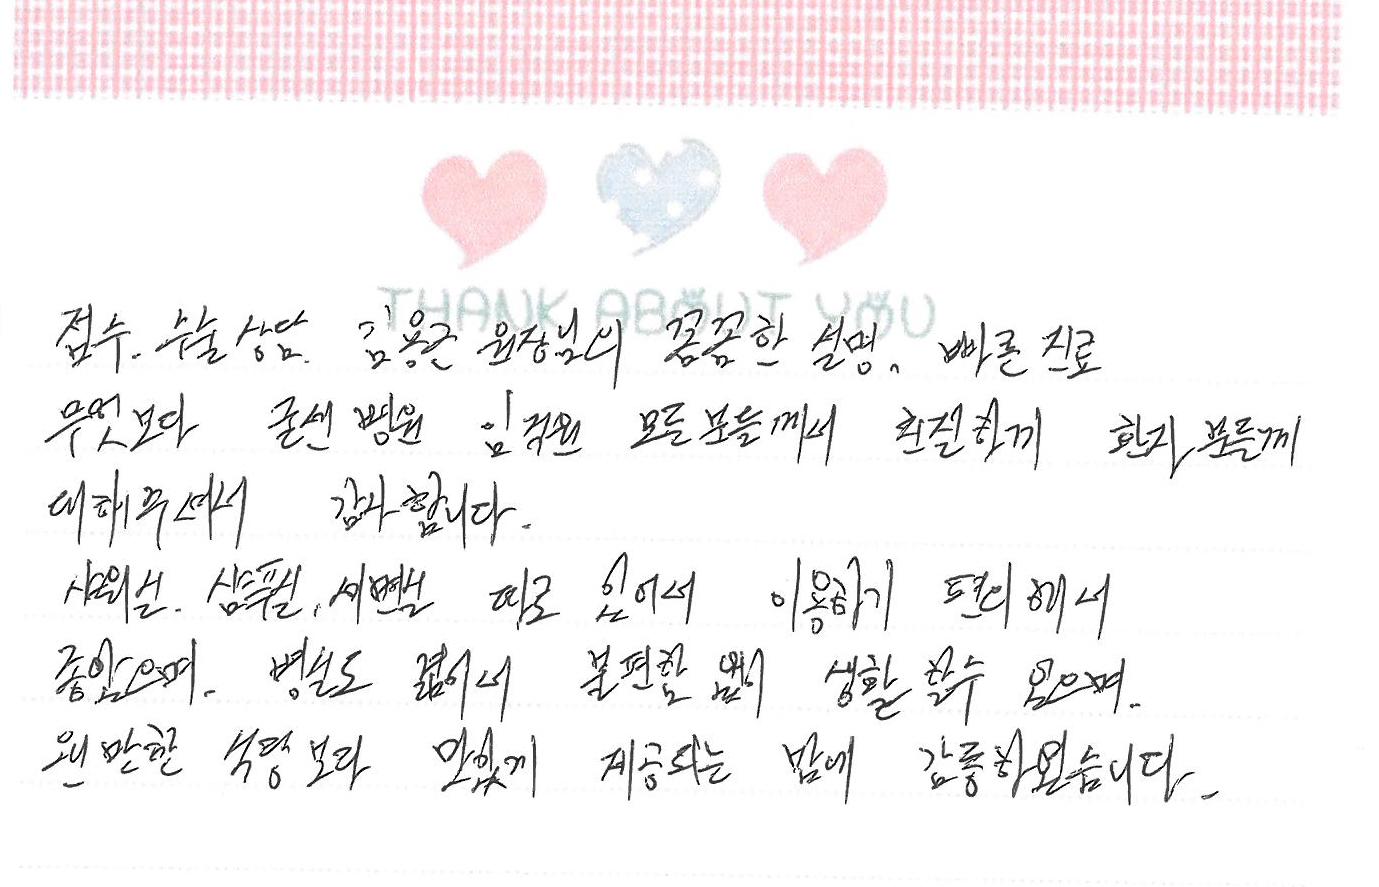 THANK ABOUT YOU
접수. 수술 상담. 김용근 원장님의 꼼꼼한 설명, 빠른 진료
무엇보다 굳센 병원 임직원 모든 분들께서 친절하게 환자분들께
대해주셔서 감사합니다.
샤워실. 샴푸실, 세면실 따로 있어서 이용하기 편의해서
좋았으며. 병실도 넓어서 불편함 없이 생활 할수 있으며.
왠만한 식당보다 맛있게 제공되는 밥에 감동하였습니다.